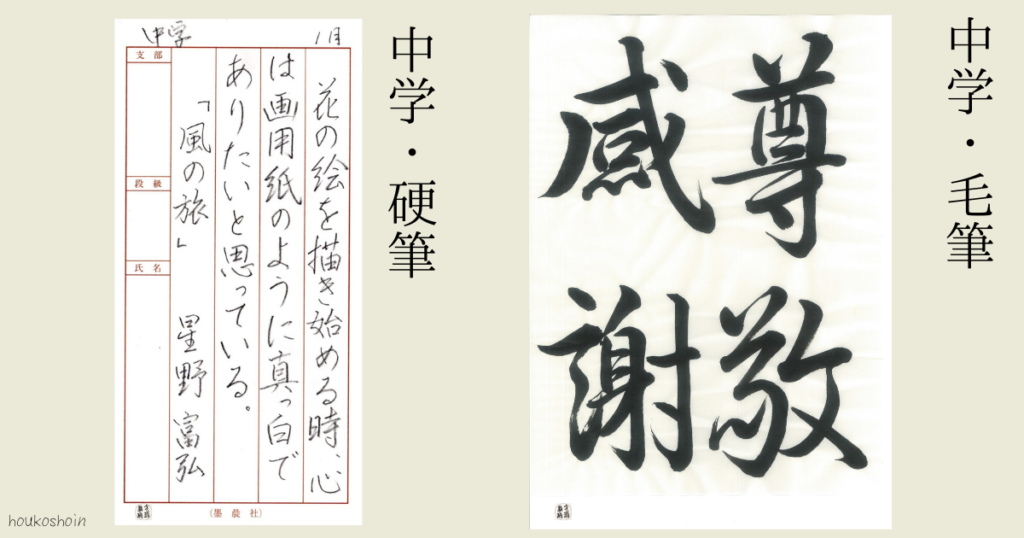 中学・毛筆
尊敬
感謝
中学・硬筆
中学
1月
花の絵を描き始める時、心
は画用紙のように真っ白で
ありたいと思っている。
「風の旅」 星野富弘
支部
段級
氏名
(墨晨社)
houkoshoin